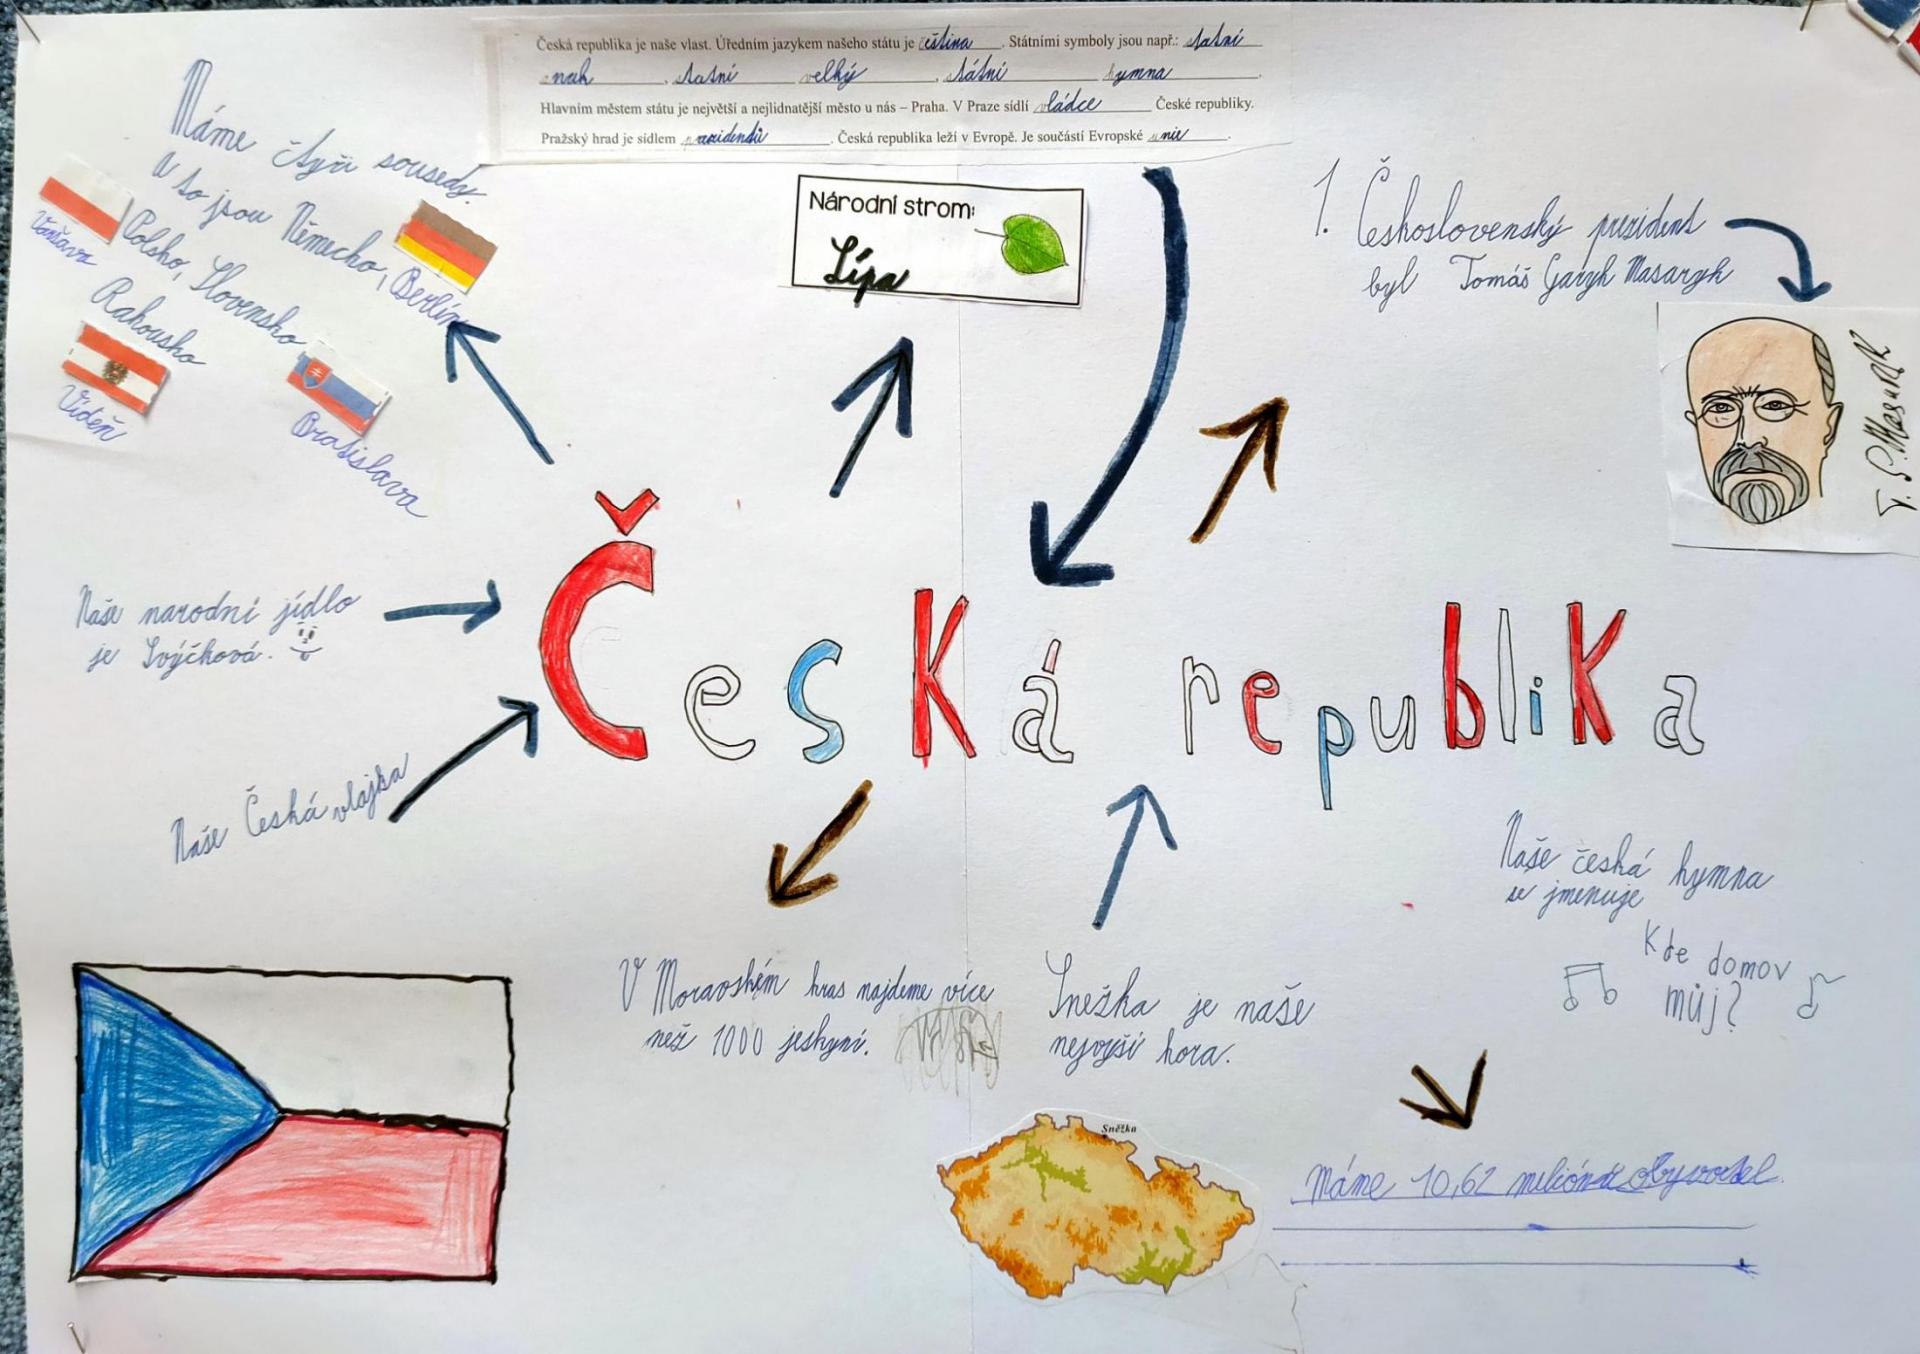 Česká republika je naše vlast. Úředním jazykem našeho státu je čeština. Státními symboly jsou např.: statní
znak, statní velký, státní hymna.
Hlavním městem státu je největší a nejlidnatější město u nás – Praha. V Praze sídlí vládce České republiky.
Pražský hrad je sídlem prezidentů. Česká republika leží v Evropě. Je součástí Evropské unie.
Máme čtyři sousedy.
A to jsou Německo, Berlín
Polsko, Slovensko
Varšava
Rakousko
Vídeň
Bratislava
Národní strom:
Lípa
1. Československý prezident
byl Tomáš Garyk Masaryk
T. G. Masaryk
Naše narodní jídlo
je Svýčková.
Česká republika
Naše Česká vlajka
V Moravském kras najdeme více
než 1000 jeskyní.
Snežka je naše
nejvyší hora.
Sněžka
Naše česká hymna
se jmenuje
Kde domov
můj?
Máme 10,62 miliónů obyvatel.